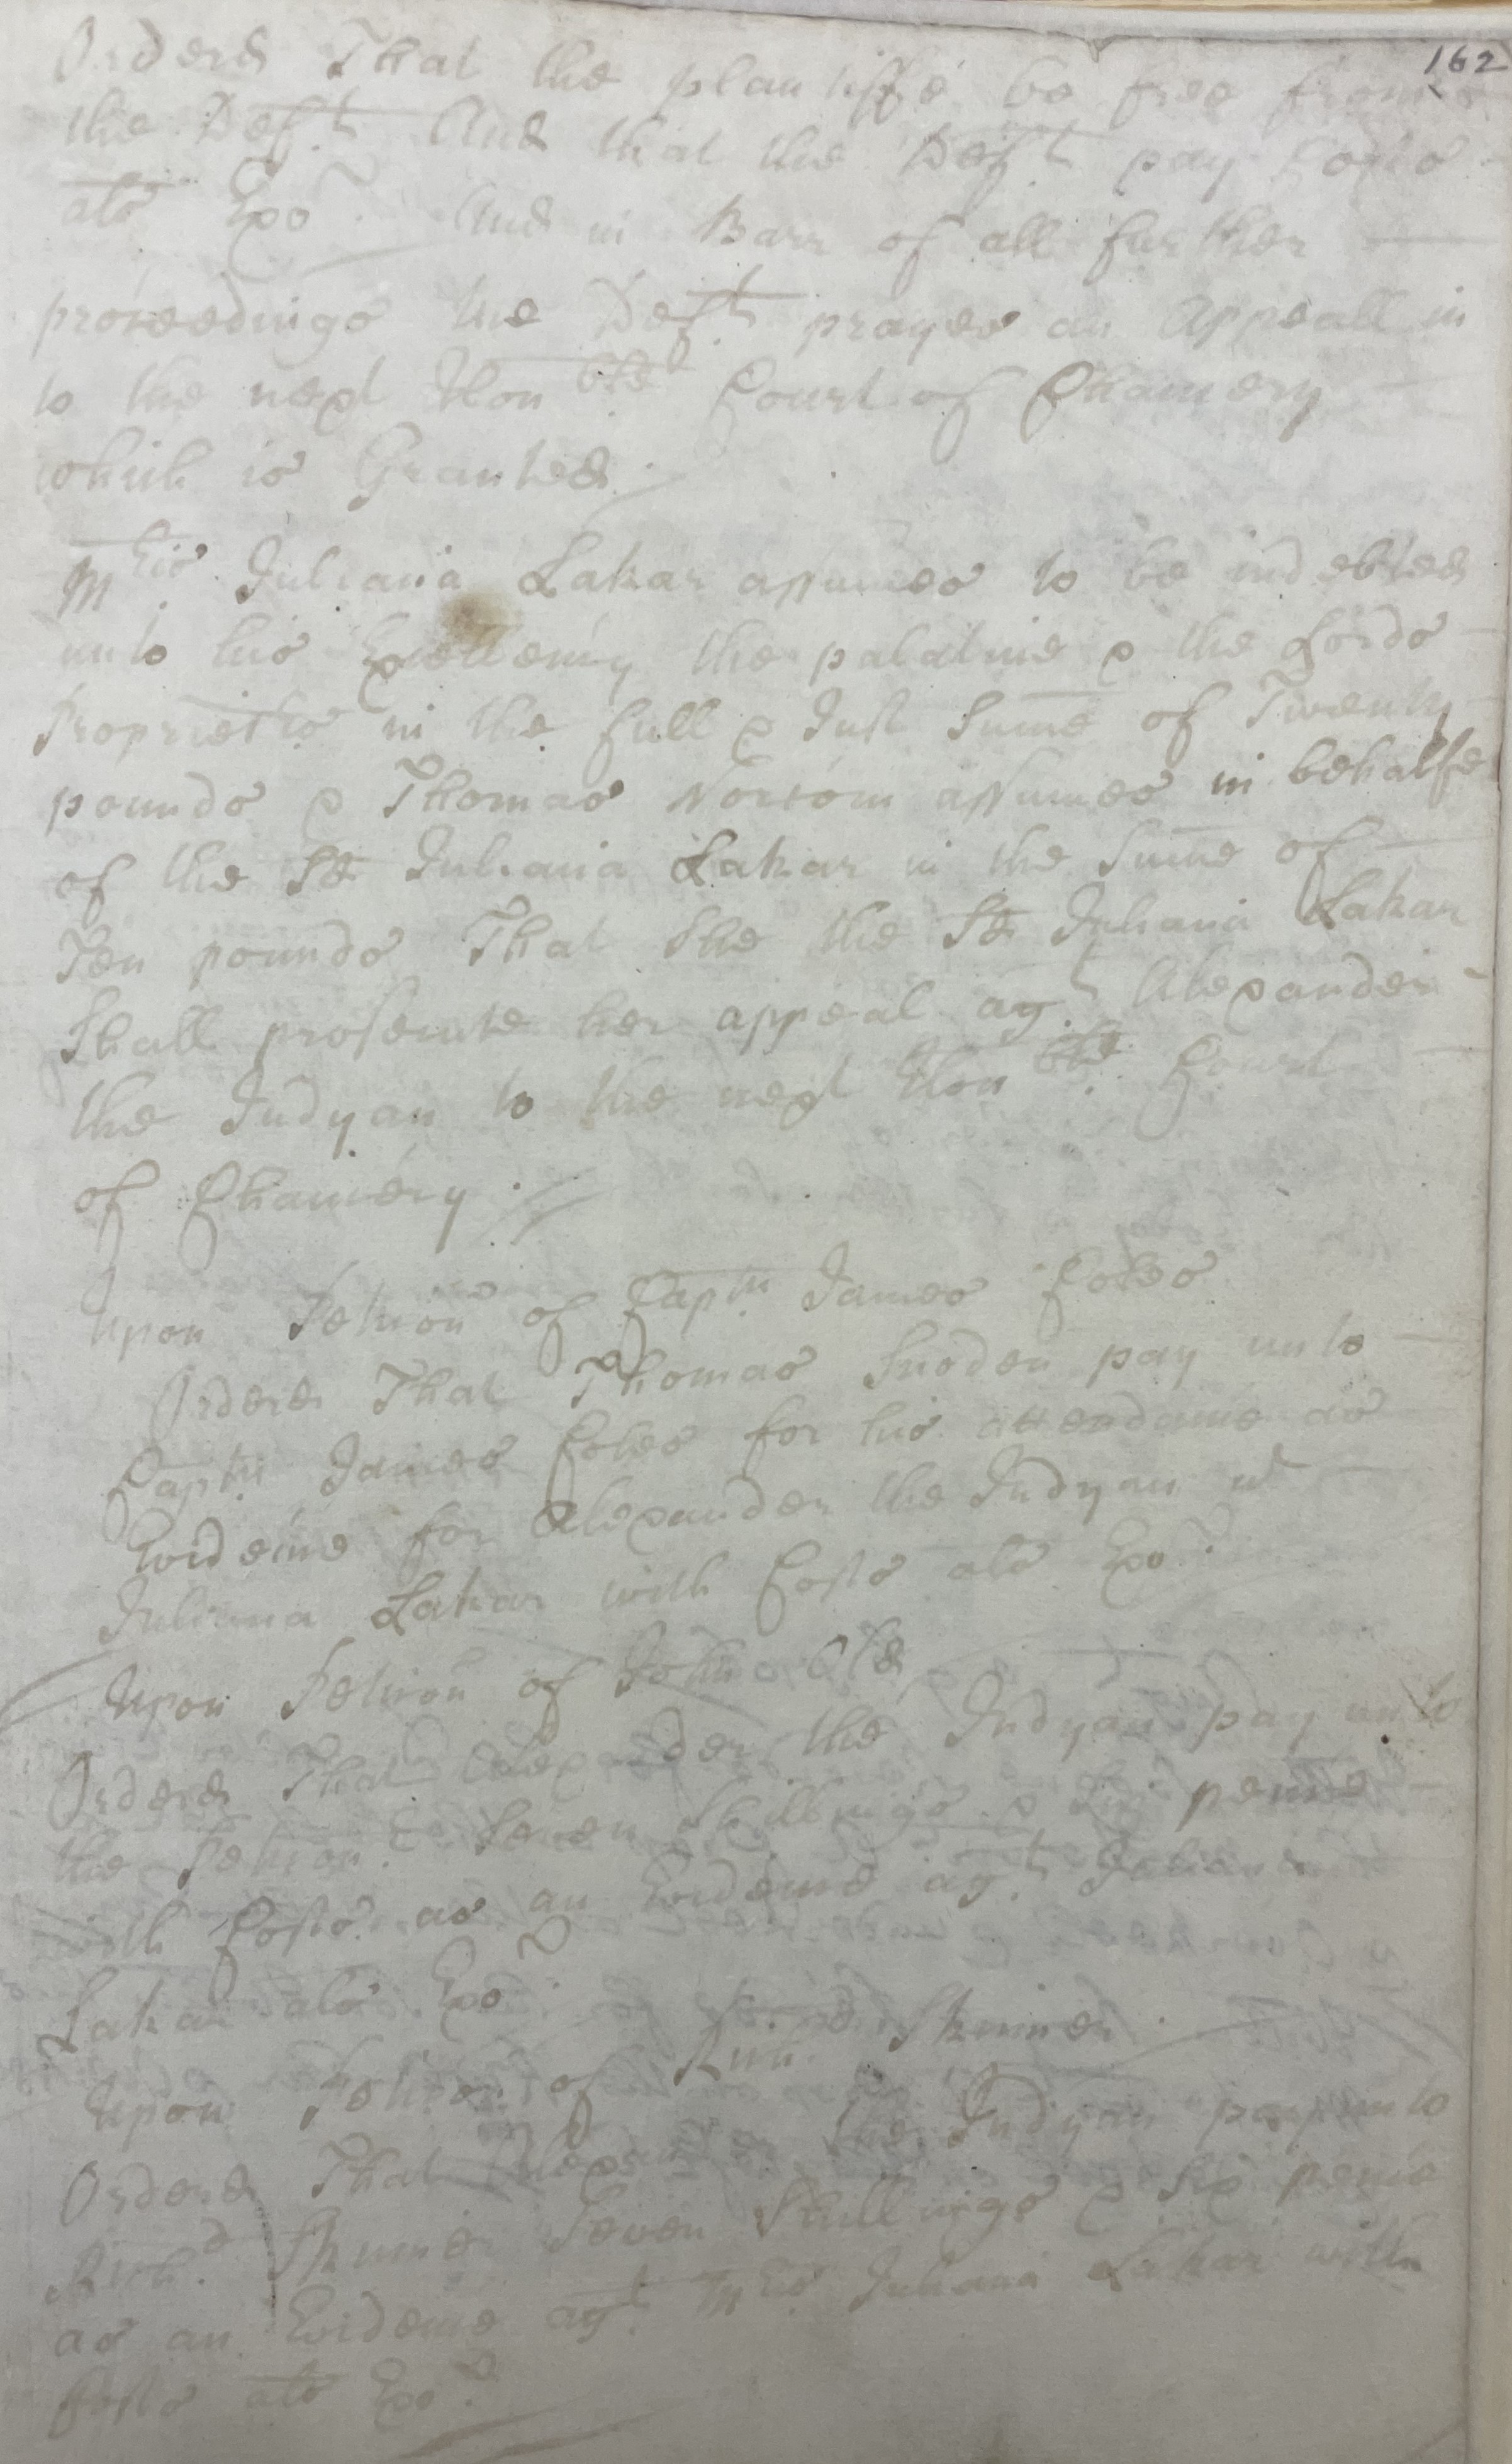 162
Ordered That the plantiffe be free from
the Deft. And that the Deft pay Costs
als Exo. And in Barr of all further
proceedings the Deft. prayes an Appeall in
to the next Honble Court of Chancery
which is Granted.
Mris. Juliana Lakar assumes to be indebted
unto his Excellency the palatine & the Lords
Proprietrs in the full & Just Sume of Twenty
pounds & Thomas Norcom assumes in behalfe
of the Sd Juliana Lakar in the Sume of
Ten pounds That She the Sd Juliana Lakar
Shall prosecute her appeal agt. Alexander
the Indyan to the next Honble. Court
of Chancery.
Upon Petucon of Captn. James Coles
Ordered That Thomas Snoden pay unto
Captn. James Coles for his attendance as
Evidence for Alexander the Indyan
Juliana Lakar with Costs als Exo.
Upon Peticon of John
Ordered That Alexander the Indyan pay unto
the Peticonr. Seven Shillings & Six pence
with Costs as an Evidence agt. Juliana
Lakar als Exo.
Upon Peticon of Richd. Skinner
Ordered That Alexander the Indyan pay unto
Richd. Skinner Seven Shillings & Six pence
as an Evidence agt. Mris Juliana Lakar with
Costs als Exo.